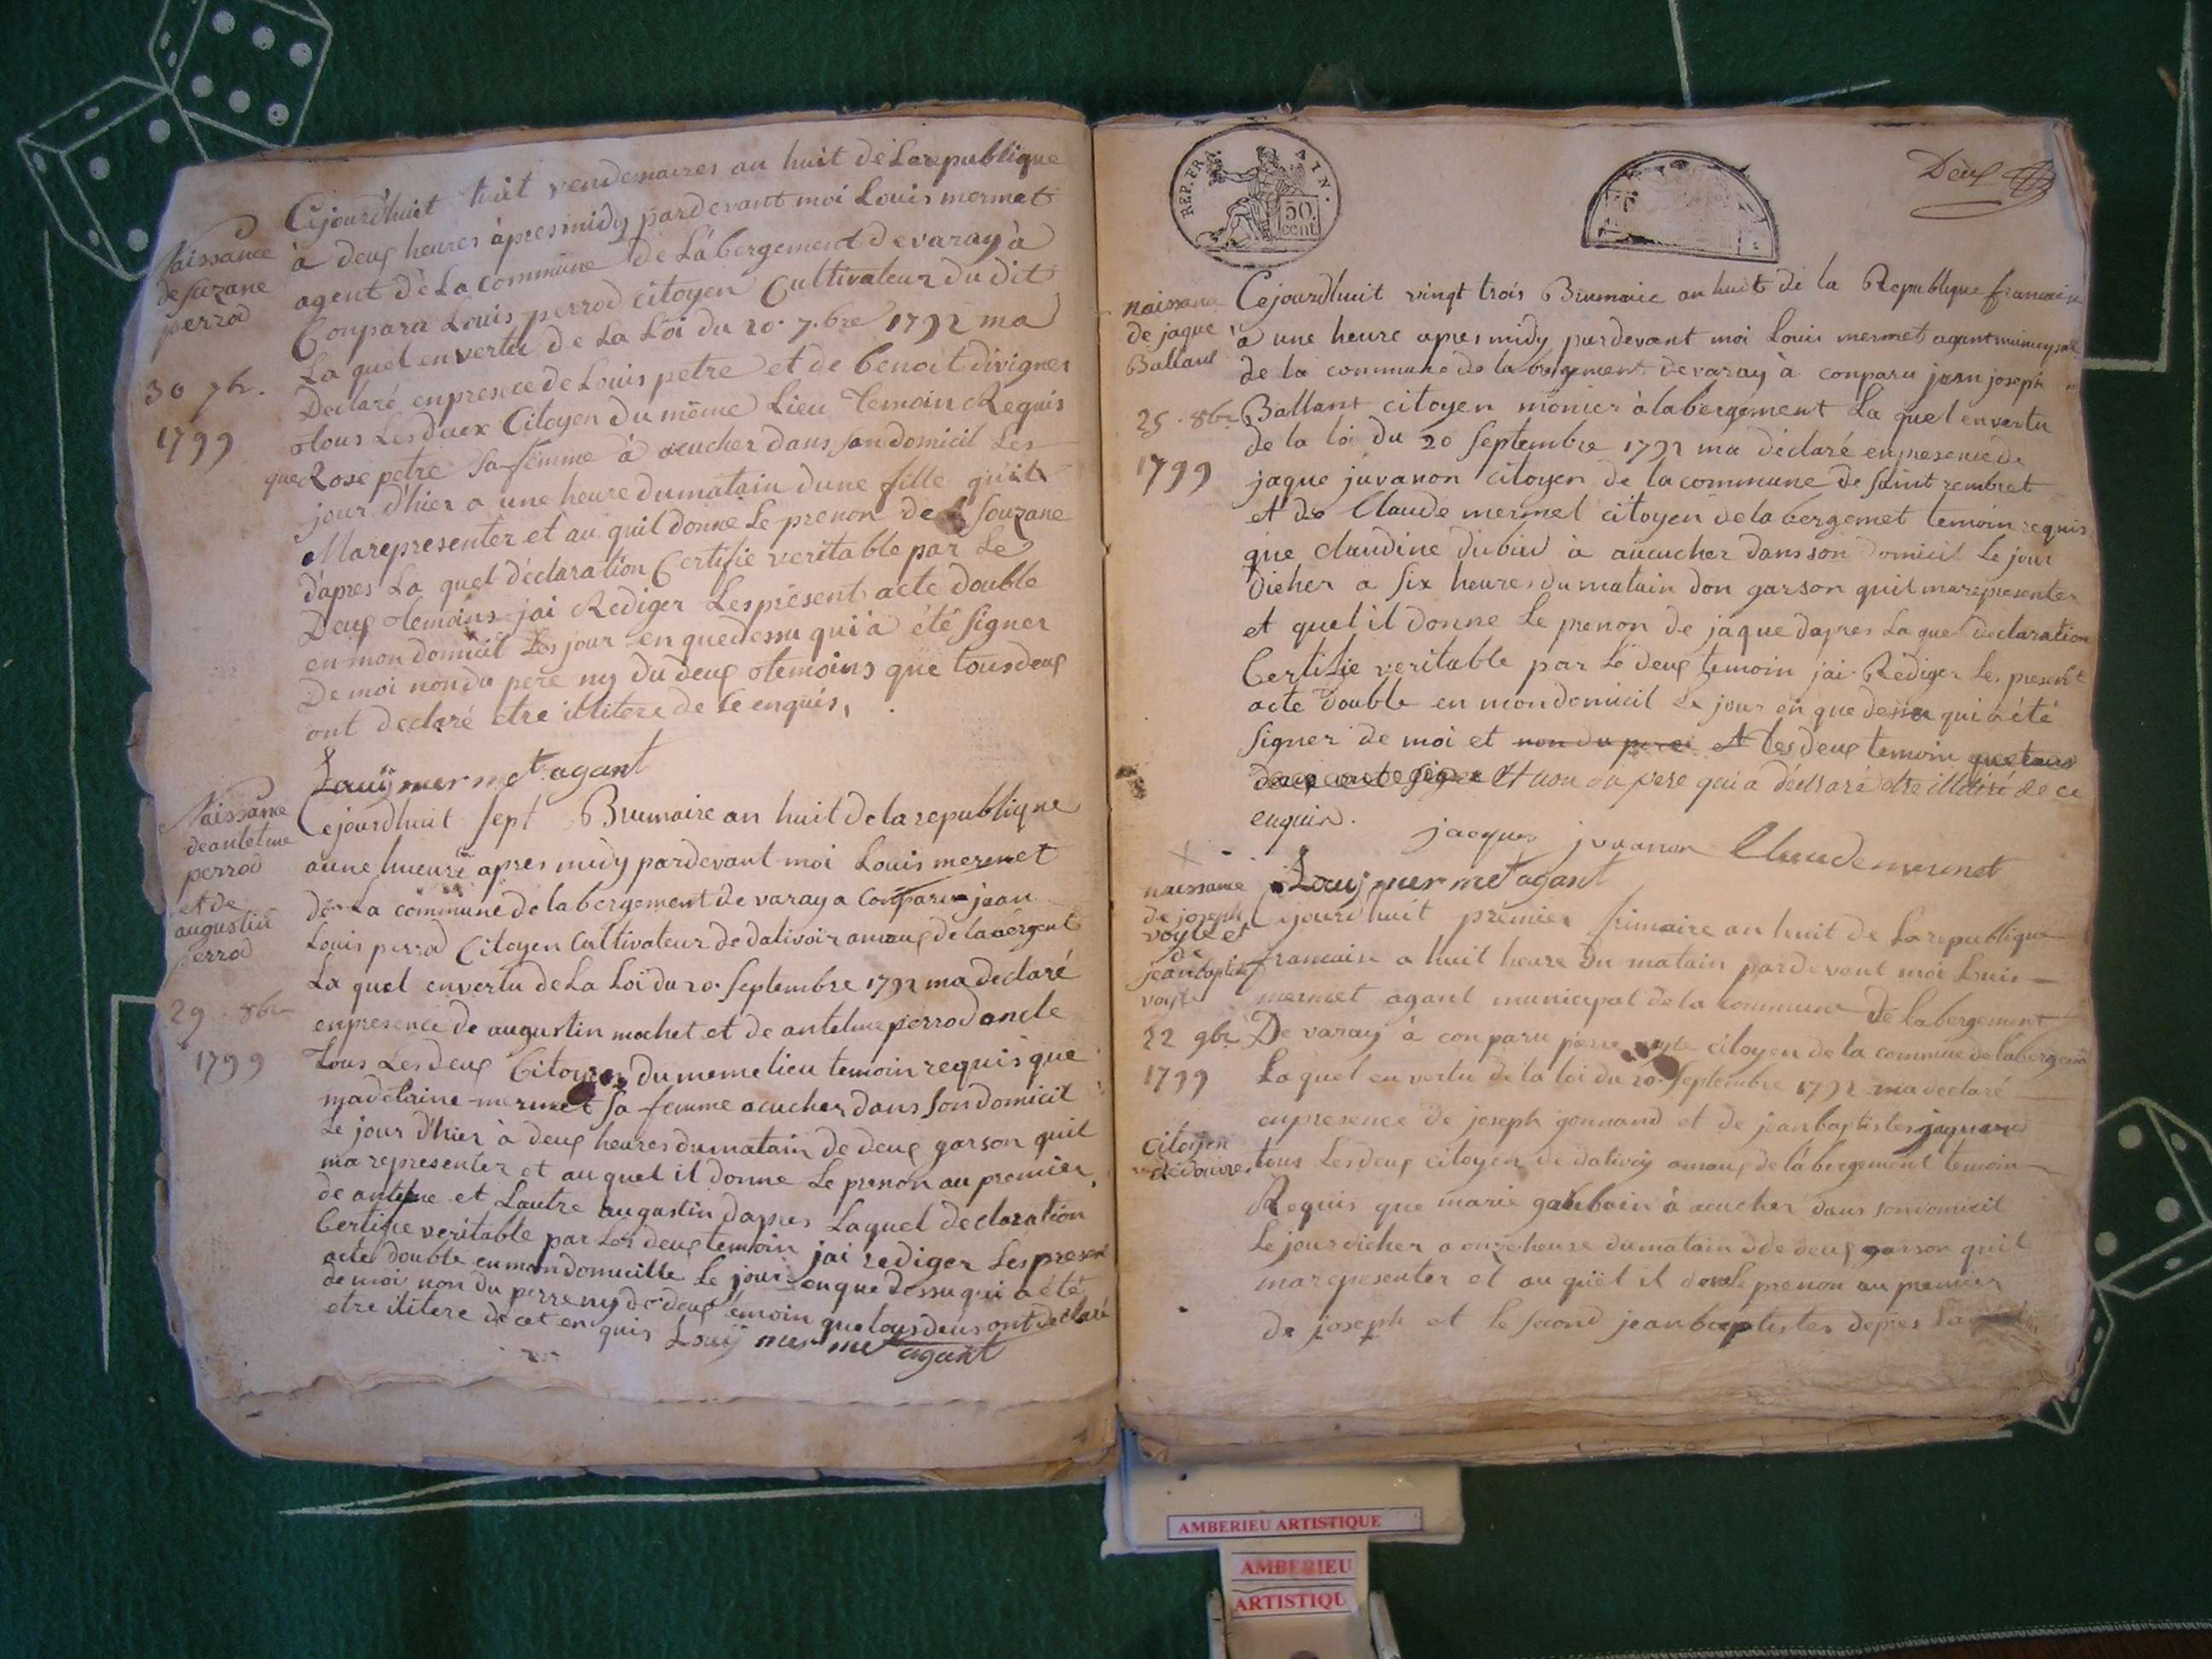 Cejourdhuit huit vendemaires an huit de Larepublique
à deux heures àpresmidy pardevant moi Louis mermet
agent de La commune de Labergement de varay à
Conparu Louis perrod citoyen Cultivateur du dit
La quel envertu de La Loi du 20. 7.bre 1792 ma
Declaré enpresence de Louis petre et de benoit divignes
tous Lesduex Citoyen du même Lieu temoin Requis
que Rose petre sa femme à acucher dans son domicil Les
jour d'hier a une heure dumatain dune fille quil
Marepresenter et au quil donne Le prenon de Souzane
dapres La quel declaration Certifie veritable par Le
Deux temoins jai Rediger Lesprésent acte double
en mon domicil Les jour en quedessu qui a été Signer
De moi non du pere ny du deux temoins que tousdeux
ont declaré etre illitere de Ce enquis,
Louÿ mermet agant
Naissance
de suzane
perrod
30 7br.
1799
Cejourdhuit sept Brumaire an huit de la republique
aune hueure apres midy pardevant moi Louis mermet
de La commune de labergement de varay a Conparu jean
Louis perrod Citoyen Cultivateur de dalivoir amaux de
La quel envertu de La Loi du 20. Septembre 1792 ma declaré
enpresence de augustin mochet et de antelme perrod oncle
tous Lesdeux Citoyen du meme lieu temoin requis que
madelaine mermet sa femme acucher dans son domicil
Le jour d'hier à deux heures dumatain de deux garson quil
ma representer et au quel il donne Le prenon au premier
de antelme et Lautre augustin dapres Laquel declaration
Certifie veritable par Les deux temoin jai rediger Les present
acte double en mon domicille Le jour enque dessu qui a été
de moi non du perre ny de deux temoin que tous deus ont declaré
etre ilitere de cet en quis Louÿ mermet agant
Naissance
de antelme
perrod
et de
augustin
perrod
29. 8bre
1799
REP. FRA.
50.
cent
AIN.
Deux
Cejourdhuit vingt trois Brumaire an huit de la Republique francaise
à une heure apres midy pardevant moi Louis mermet agant municypal
de la commune de la bergement de varay à conparu jean joseph
Ballant citoyen monier à labergement La quel envertu
de la loi du 20 Septembre 1792 ma déclaré enpresence de
jaque juvanon citoyen de la commune de saint rembret
et de Claude mermet citoyen de la bergemet temoin requis
que claudine dubiu à aucucher dans son domicil Le jour
dieher a six heures du matain don garson quil marepresenter
et quel il donne Le prenon de jaque dapres La quel declaration
Certifie veritable par Le deux temoin jai Rediger Les present
acte double en mon domicil Le jour en que dessu qui a été
signer de moi et non du pere et les deux temoin que tous
deux ont signer Et non du pere qui a déclaré etre illitéré de ce
enquis.
jacques juvanon Claude mermet
Louÿ mermet agant
naissance
de jaque
Ballant
25. 8bre
1799
Cejourdhuit prémier frimaire an huit de La republique
francaise a huit heure du matain pardevant moi Louis
mermet agant municipal de la commune de labergement
De varay à conparu pierre citoyen de la commune de labergement
La quel en vertu de la loi du 20. Septembre 1792 ma declaré
enpresence de joseph gonnand et de jeanbaptistes
tous Lesdeux citoyen de dalivoy amaux de labergement temoin
Requis que marie à acucher dans son domicil
Le jour dieher a onze heure dumatain de deux garson quil
marepesenter et au quel il donne Le prenon au premier
de joseph et Le second jeanbaptistes depres La
naissance
de joseph
voyle et
de
jeanbaptiste
voyle
22 9bre
1799
citoyen
AMBERIEU ARTISTIQUE
AMBERIEU
ARTISTIQU